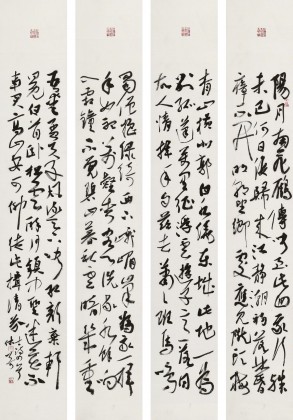 陽月南飛雁傳聞至此回我行殊
未已何日復歸來江静潮初落林昏
瘴不開明朝望鄉處應見隴頭梅
青山橫北郭白水繞東城此地一為
別孤蓬萬里征浮雲遊子意落日
故人情揮手自茲去蕭蕭班馬鳴
蜀僧抱綠綺西下峨眉峰為我一揮
手如聽萬壑松客心洗流水餘響
入霜鐘不覺碧山暮秋雲暗幾重
吾愛孟夫子風流天下聞紅顏棄軒
冕白首卧松雲醉月頻中聖迷花不
事君高山安可仰徒此揖清芬